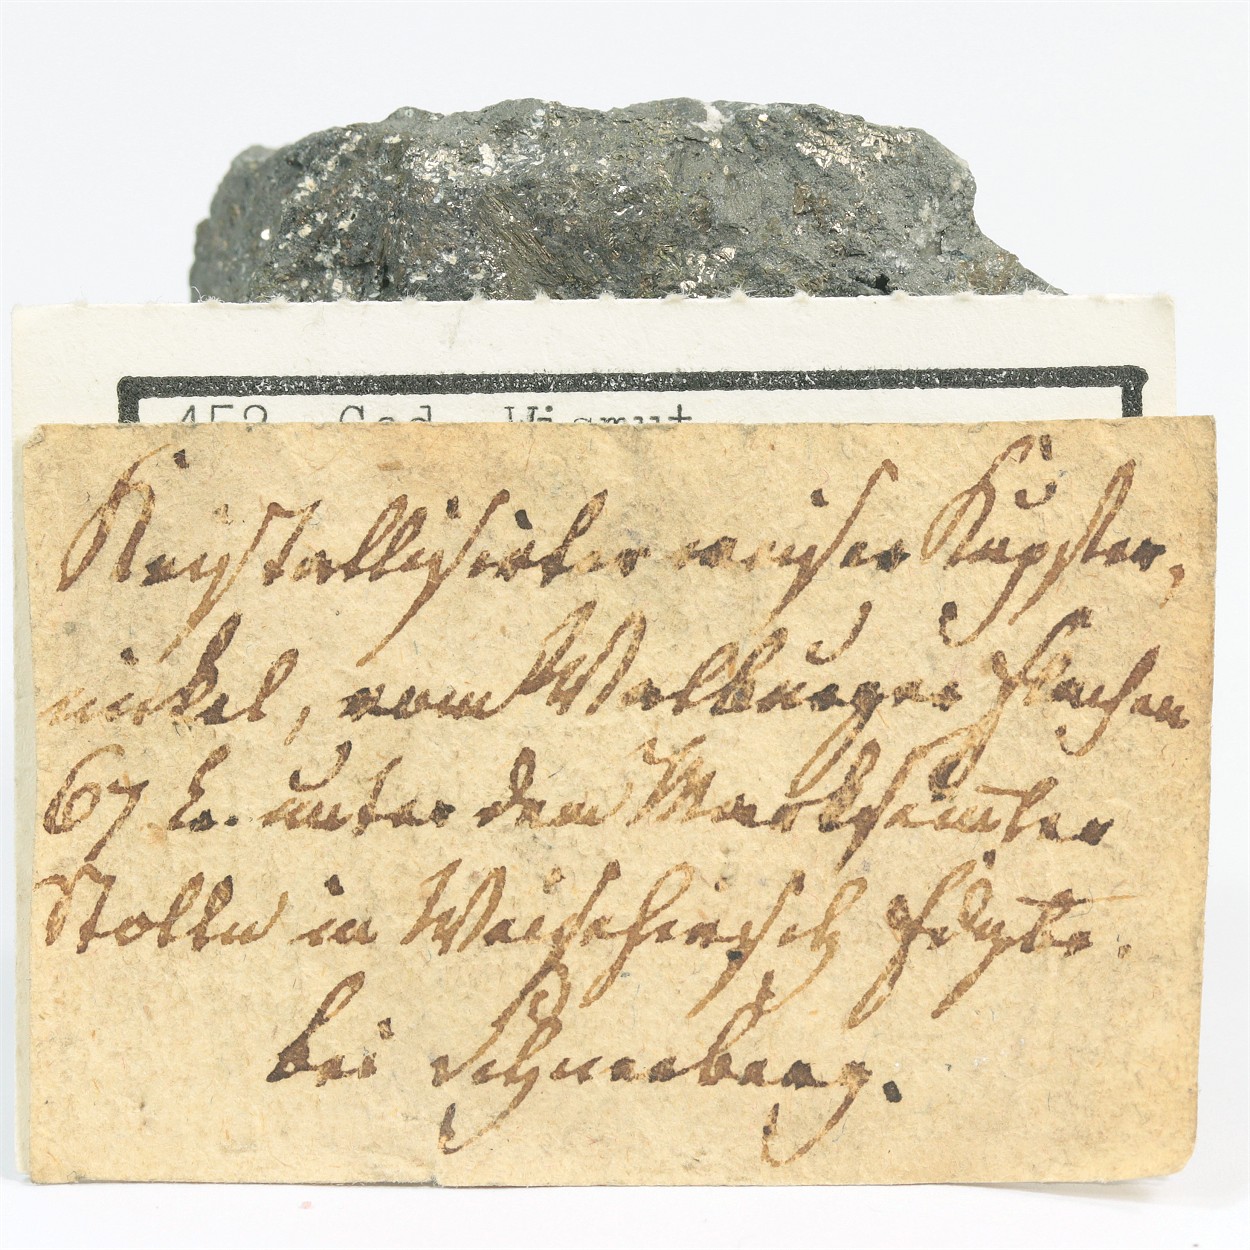 453. Ged. Wismut
Krystallisirter weiser Kupfer,
nickel, vom Walburger Flachen
67 Lr. unter dem Marksemler
Stolln in Weisehirsch Fdgbe.
bei Schneeberg.